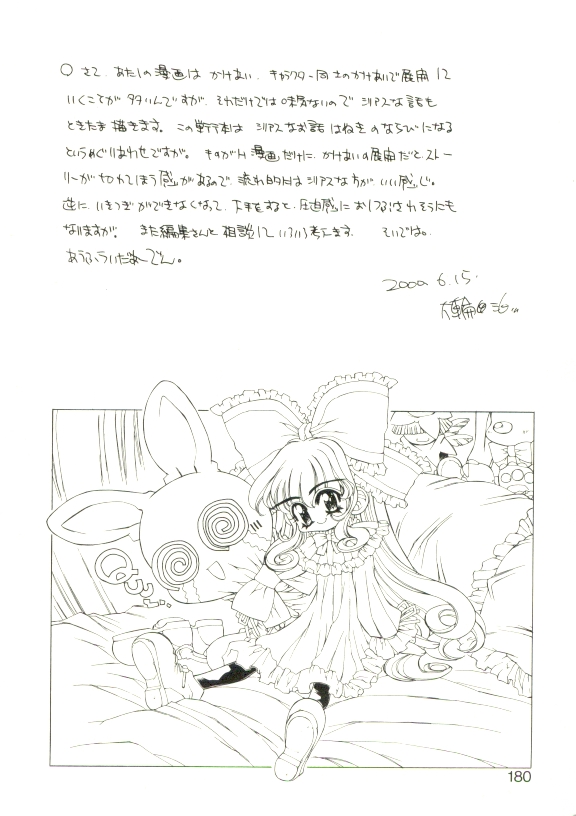 ○ さて、あたしの漫画は かけあい、キャラクター同士のかけあいで展開して
いくことが 多いんですが、それだけでは 味気ないので シリアスな話も
ときたま 描きます。 この単行本は シリアスなお話 はねき のならびになる
というめぐりあわせですが。 ものがH 漫画だけに、かけあいの展開だと、ストー
リーが 切れてしまう感があるので、流れ的にはシリアスな方が、いい感じ。
逆に、いきつぎができなくなって、下手をすると、圧迫感に おしつぶされそうにも
なりますが。 また編集さんと 相談して いろいろ考えます。 それでは。
あうふ う゛ぃだぁーぜん。
2000. 6. 15.
はうっ…
180